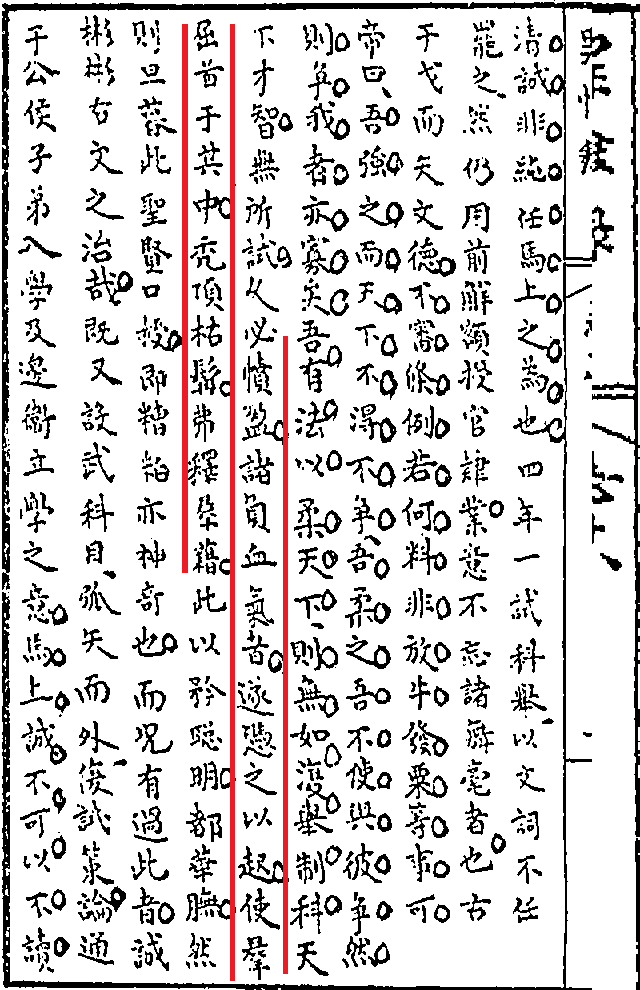 清誠非純任馬上之為也四年一試科舉以文詞不任
罷之然仍用前解額授官肄業意不忘諸耄者也古
干戈而矢文德不審條例若何料非放牛發粟等事可
帝曰吾強之而天下不得不爭吾柔之吾不使與彼爭然
則爭我者亦寡矣吾有法以柔天下則無如復舉制科天
下才智無所試久必憤盈諸負血氣者遂憑之以起使羣
屈首于其中禿頂枯髯弗釋桊籍此以矜聰明都華膴然
則旦暮此聖賢口授即糟粕亦神奇也而況有過此者誠
彬彬右文之治哉既又設武科目弧矢而外復試策論通
于公侯子弟入學及邊衛立學之意馬上誠不可以不讀